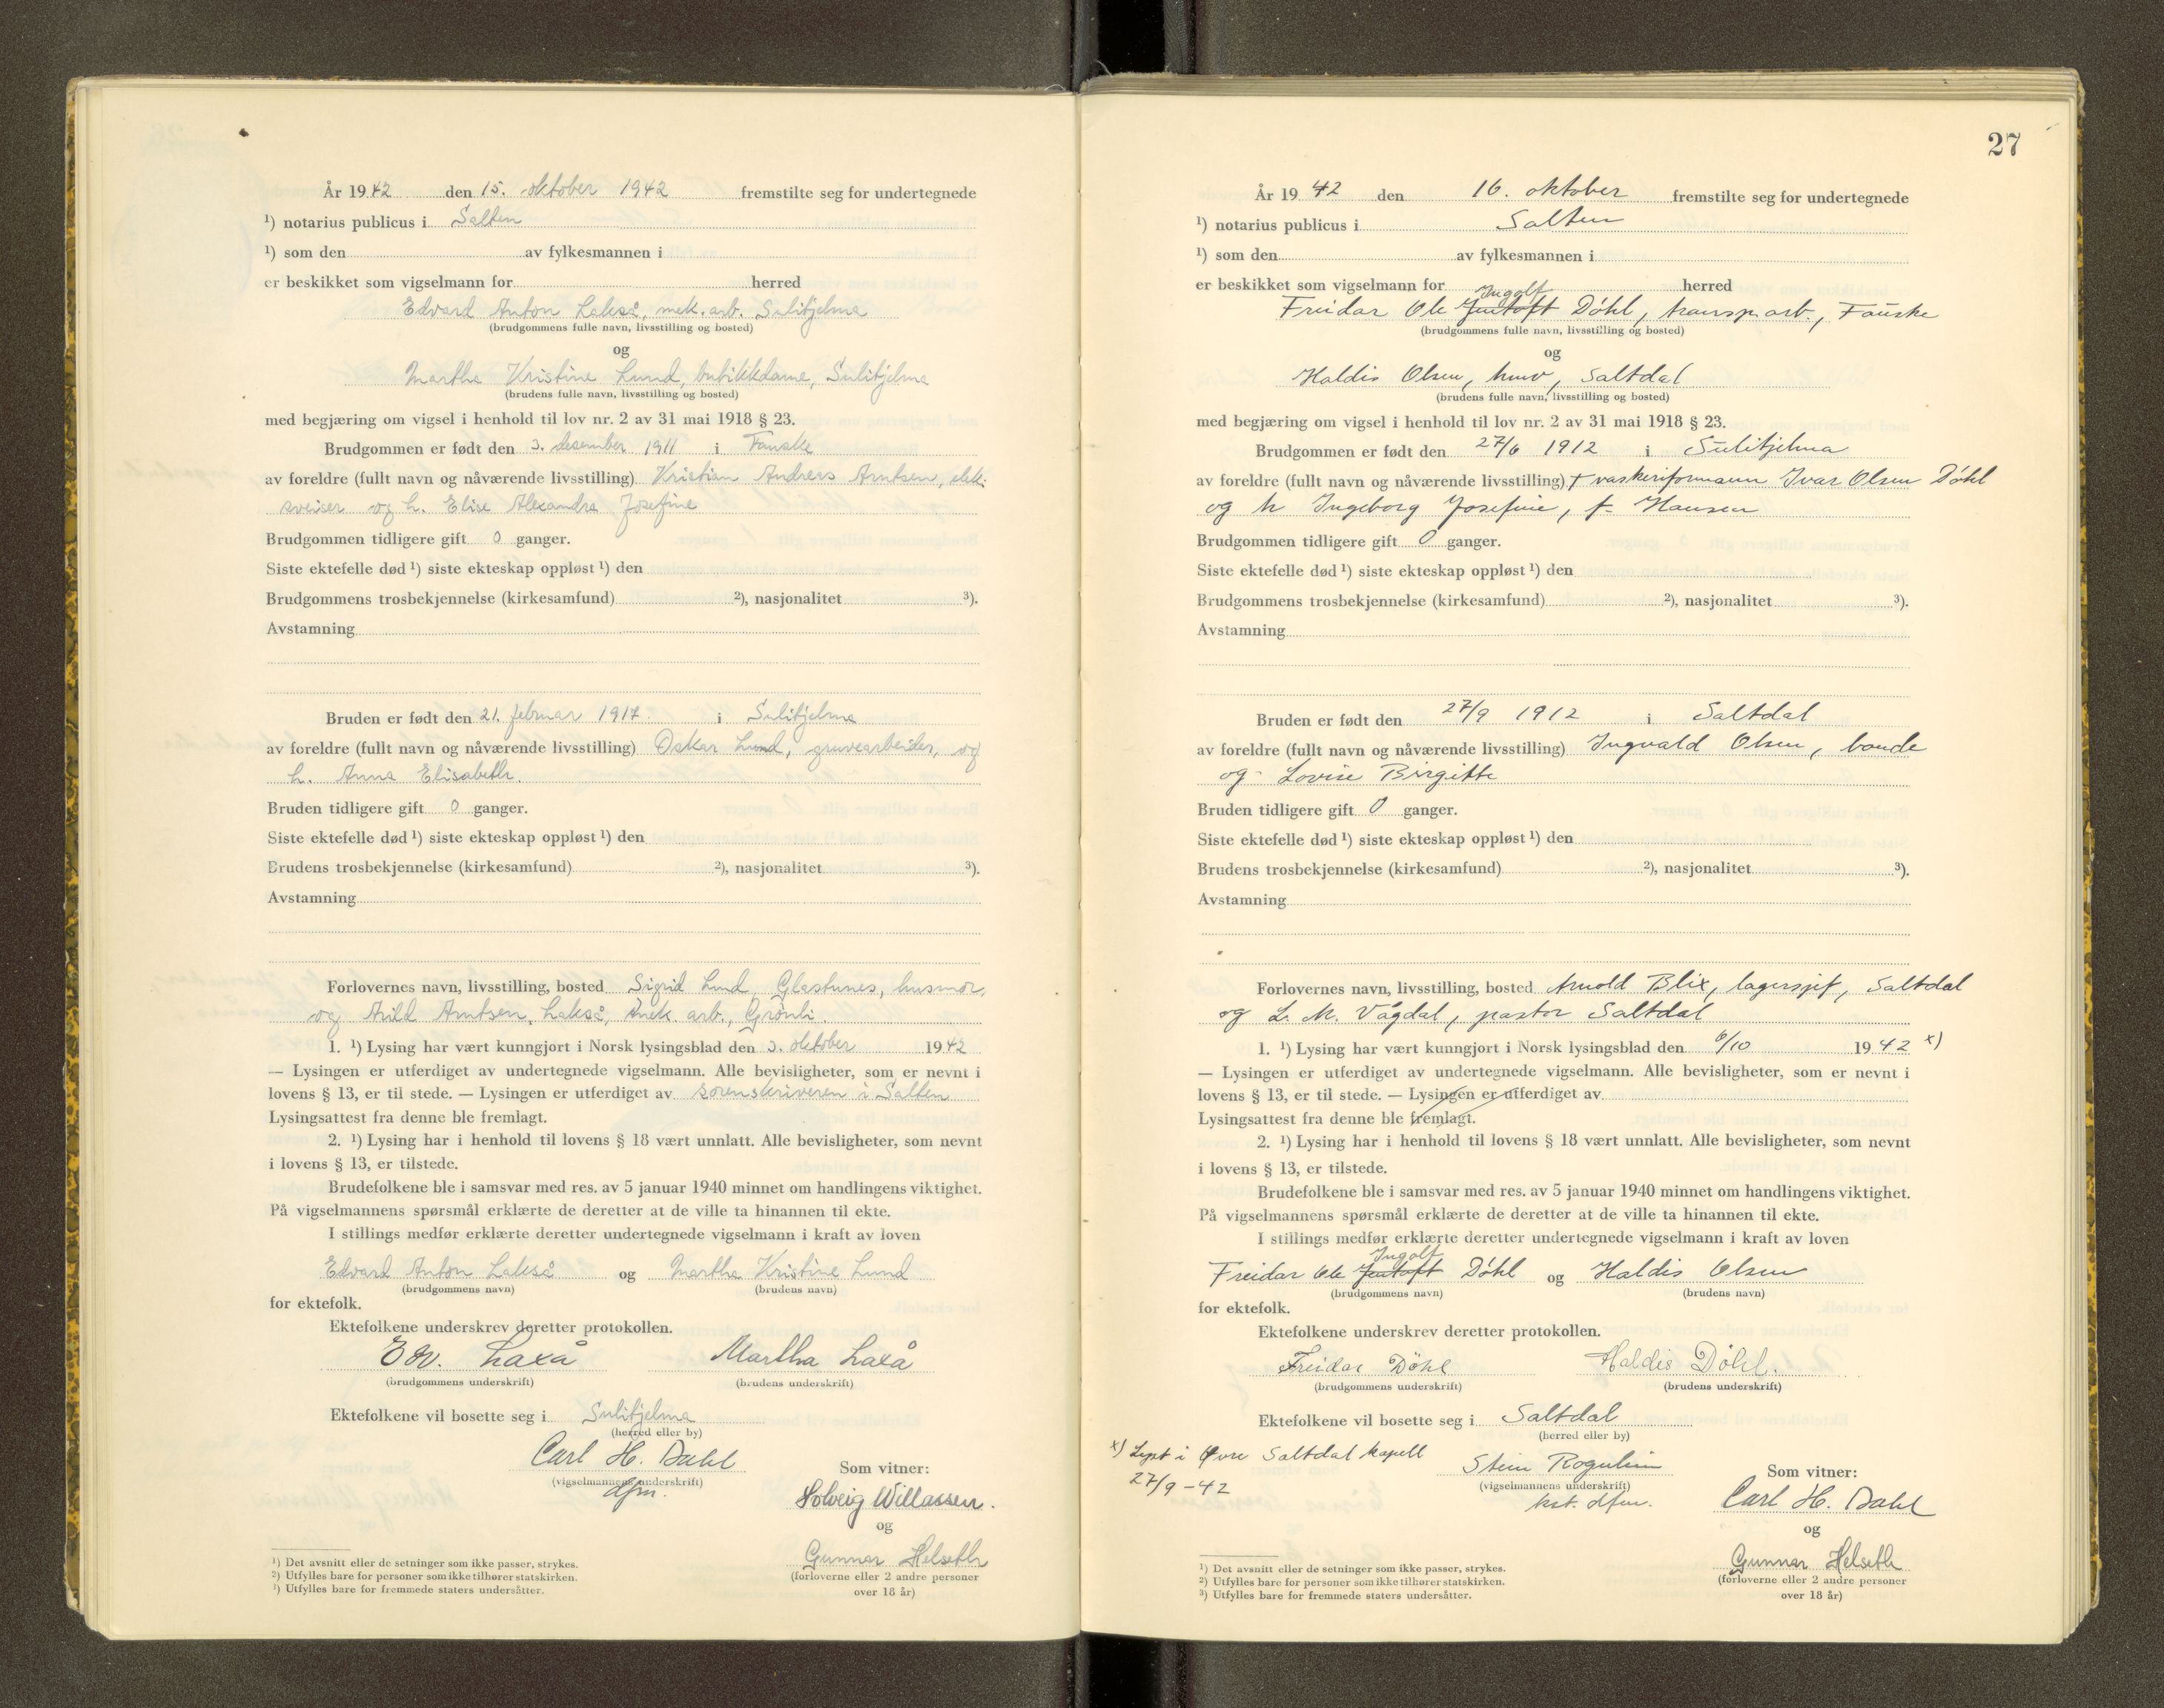 År 1942 den 15. oktober 1942 fremstilte seg for undertegnede
¹) notarius publicus i Salten
¹) som den av fylkesmannen i
er beskikket som vigselmann for herred
Edvard Anton Lakså, mek. arb. Sulitjelma
(brudgommens fulle navn, livsstilling og bosted)
og
Martha Kristine Lund, butikkdame, Sulitjelma
(brudens fulle navn, livsstilling og bosted)
med begjæring om vigsel i henhold til lov nr. 2 av 31 mai 1918 § 23.
Brudgommen er født den 3. desember 1911 i Fauske
av foreldre (fullt navn og nåværende livsstilling) Kristian Andreas Arntsen, elek.
sveiser og h. Elise Alexandra Josefine
Brudgommen tidligere gift 0 ganger.
Siste ektefelle død ¹) siste ekteskap oppløst ¹) den
Brudgommens trosbekjennelse (kirkesamfund) ²), nasjonalitet ³).
Avstamning
Bruden er født den 21. februar 1917. i Sulitjelma
av foreldre (fullt navn og nåværende livsstilling) Oskar Lund, gruvearbeider, og
h. Anna Elisabeth.
Bruden tidligere gift 0 ganger.
Siste ektefelle død ¹) siste ekteskap oppløst ¹) den
Brudens trosbekjennelse (kirkesamfund) ²), nasjonalitet ³).
Avstamning
Forlovernes navn, livsstilling, bosted Sigrid Lund Glastunes, husmor,
og Arild Arntsen, Lakså, mek. arb., Grønli.
1. ¹) Lysing har vært kunngjort i Norsk lysingsblad den 3. oktober 1942
— Lysingen er utferdiget av undertegnede vigselmann. Alle bevisligheter, som er nevnt i
lovens § 13, er til stede. — Lysingen er utferdiget av sorenskriveren i Salten
Lysingsattest fra denne ble fremlagt.
2. ¹) Lysing har i henhold til lovens § 18 vært unnlatt. Alle bevisligheter, som nevnt
i lovens § 13, er tilstede.
Brudefolkene ble i samsvar med res. av 5 januar 1940 minnet om handlingens viktighet.
På vigselmannens spørsmål erklærte de deretter at de ville ta hinannen til ekte.
I stillings medfør erklærte deretter undertegnede vigselmann i kraft av loven
Edvard Anton Lakså og Martha Kristine Lund
(brudgommens navn) (brudens navn)
for ektefolk.
Ektefolkene underskrev deretter protokollen.
Edv. Laxå Martha Laxå
(brudgommens underskrift) (brudens underskrift)
Ektefolkene vil bosette seg i Sulitjelma
(herred eller by)
Carl H. Dahl
(vigselmannens underskrift)
dfm.
Som vitner:
Solveig Willassen.
og
Gunnar Helseth
(forloverne eller 2 andre personer
over 18 år)
¹) Det avsnitt eller de setninger som ikke passer, strykes.
²) Utfylles bare for personer som ikke tilhører statskirken.
³) Utfylles bare for fremmede staters undersåtter.
27
År 1942 den 16. oktober fremstilte seg for undertegnede
¹) notarius publicus i Salten
¹) som den av fylkesmannen i
er beskikket som vigselmann for herred
Ingolf
Freidar Ole Jentoft Döhl, transp. arb., Fauske
(brudgommens fulle navn, livsstilling og bosted)
og
Haldis Olsen, hmv, Saltdal
(brudens fulle navn, livsstilling og bosted)
med begjæring om vigsel i henhold til lov nr. 2 av 31 mai 1918 § 23.
Brudgommen er født den 27/6 1912 i Sulitjelma
av foreldre (fullt navn og nåværende livsstilling) + vaskeriformann Ivar Olsen Döhl
og h Ingeborg Josefine, f. Hansen
Brudgommen tidligere gift 0 ganger.
Siste ektefelle død ¹) siste ekteskap oppløst ¹) den
Brudgommens trosbekjennelse (kirkesamfund) ²), nasjonalitet ³).
Avstamning
Bruden er født den 27/9 1912 i Saltdal
av foreldre (fullt navn og nåværende livsstilling) Ingvald Olsen, bonde
og Lovise Birgitte
Bruden tidligere gift 0 ganger.
Siste ektefelle død ¹) siste ekteskap oppløst ¹) den
Brudens trosbekjennelse (kirkesamfund) ²), nasjonalitet ³).
Avstamning
Forlovernes navn, livsstilling, bosted Arnold Blix, lagersjef, Saltdal
og L. M. Vågdal, pastor Saltdal
1. ¹) Lysing har vært kunngjort i Norsk lysingsblad den 6/10 1942 x)
— Lysingen er utferdiget av undertegnede vigselmann. Alle bevisligheter, som er nevnt i
lovens § 13, er til stede. — Lysingen er utferdiget av
Lysingsattest fra denne ble fremlagt.
2. ¹) Lysing har i henhold til lovens § 18 vært unnlatt. Alle bevisligheter, som nevnt
i lovens § 13, er tilstede.
Brudefolkene ble i samsvar med res. av 5 januar 1940 minnet om handlingens viktighet.
På vigselmannens spørsmål erklærte de deretter at de ville ta hinannen til ekte.
I stillings medfør erklærte deretter undertegnede vigselmann i kraft av loven
Ingolf
Freidar Ole Jentoft Döhl og Haldis Olsen
(brudgommens navn) (brudens navn)
for ektefolk.
Ektefolkene underskrev deretter protokollen.
Freidar Döhl Haldis Döhl.
(brudgommens underskrift) (brudens underskrift)
Ektefolkene vil bosette seg i Saltdal
(herred eller by)
x) Lyst i Øvre Saltdal kapell
27/9 - 42
Stein Rognlien
(vigselmannens underskrift)
kst. dfm.
Som vitner:
Carl H. Dahl
og
Gunnar Helseth
(forloverne eller 2 andre personer
over 18 år)
¹) Det avsnitt eller de setninger som ikke passer, strykes.
²) Utfylles bare for personer som ikke tilhører statskirken.
³) Utfylles bare for fremmede staters undersåtter.